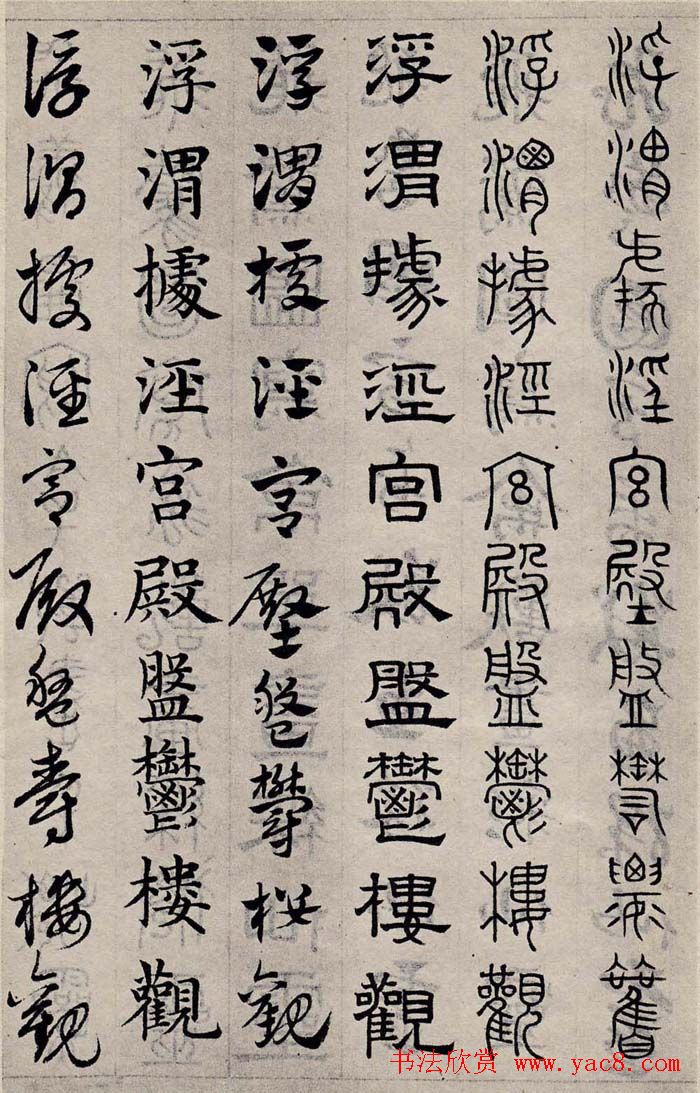 浮渭據涇宮殿盤鬱樓觀
浮渭據涇宮殿盤鬱樓觀
浮渭據涇宮殿盤鬱樓觀
浮渭據涇宮殿盤鬱樓觀
浮渭據涇宮殿盤鬱樓觀
浮渭據涇宮殿盤鬱樓觀
书法欣赏 www.yac8.com